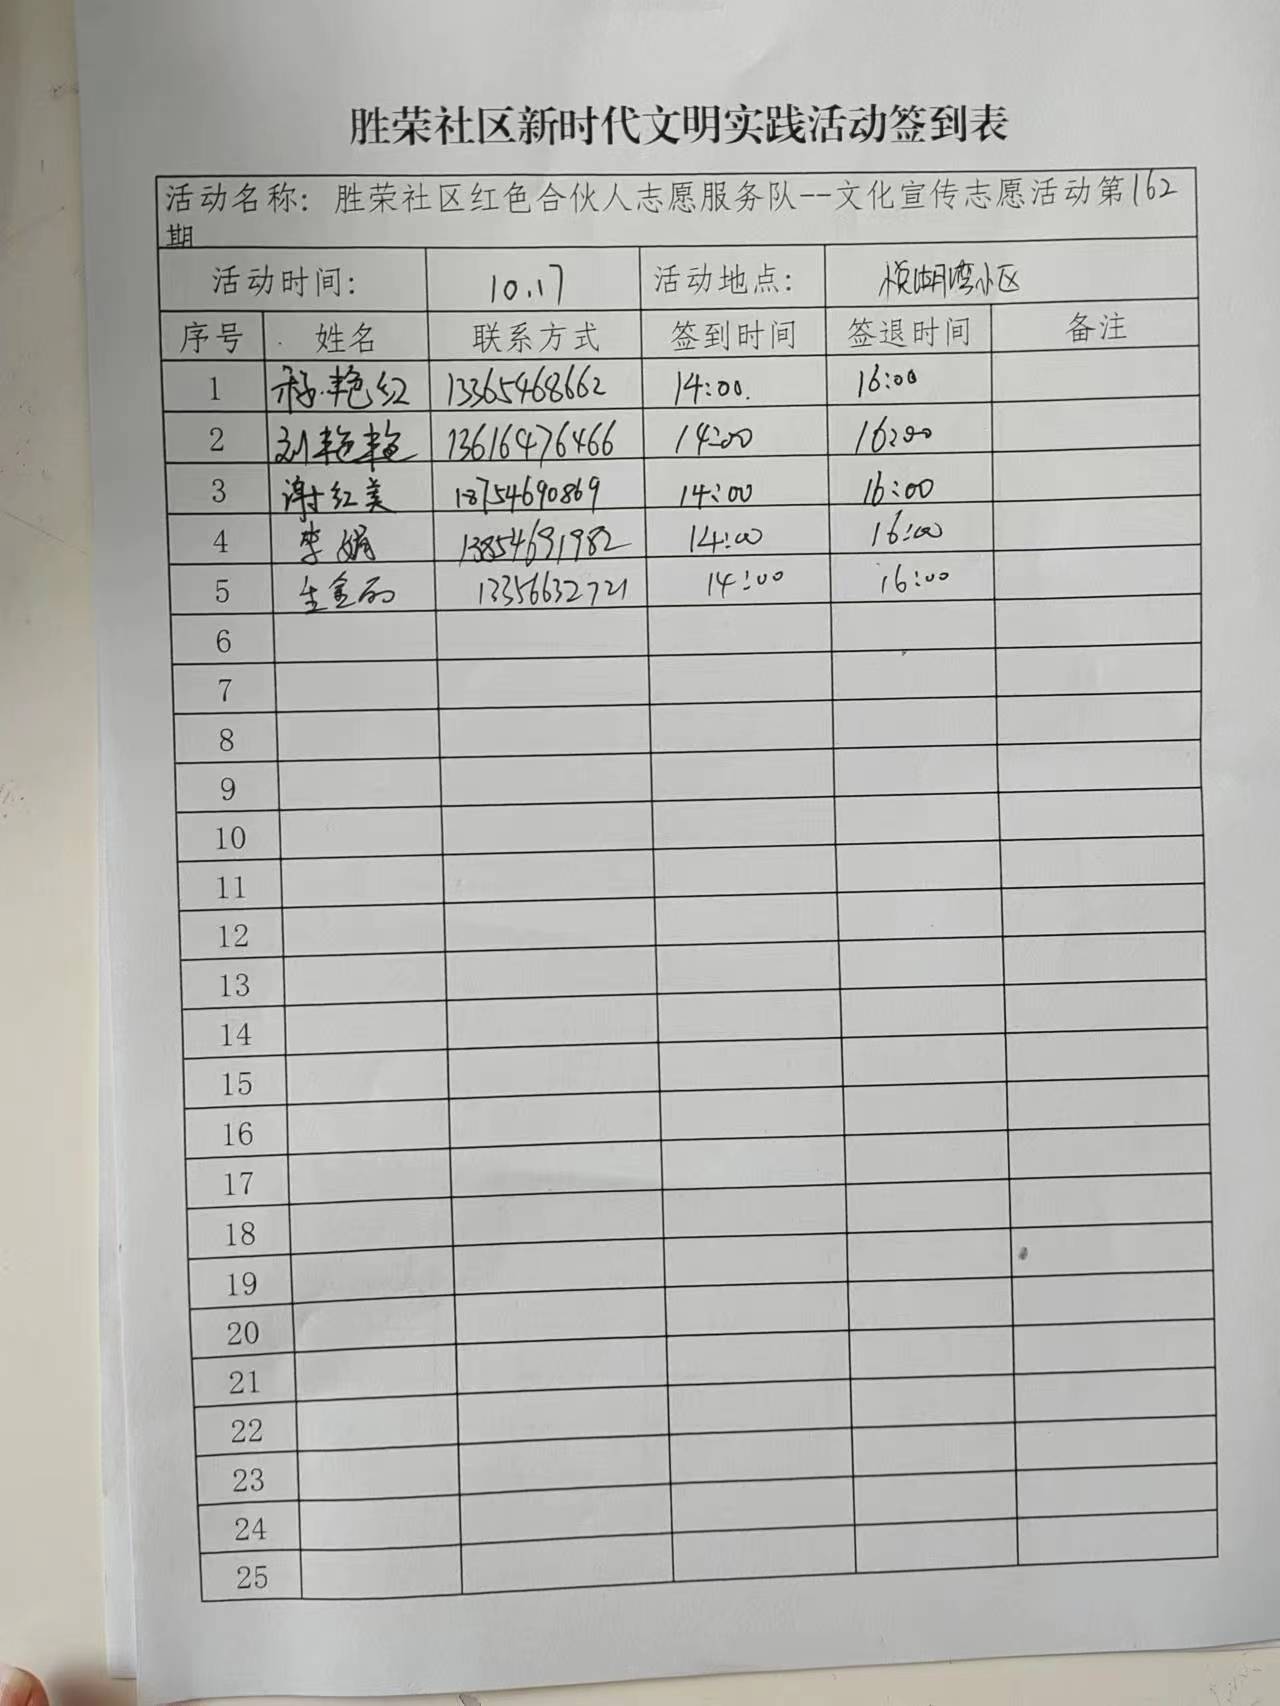 胜荣社区新时代文明实践活动签到表
活动名称：胜荣社区红色合伙人志愿服务队--文化宣传志愿活动第162
期
活动时间： 10.17 活动地点： 悦湖湾小区
序号 姓名 联系方式 签到时间 签退时间 备注
1 艳红 13365468662 14:00. 16:00
2 刘艳艳 13616476466 14:00 16:00
3 谢红美 18754690869 14:00 16:00
4 李娟 13854691982 14:00 16:00
5 13356632721 14:00 16:00
6
7
8
9
10
11
12
13
14
15
16
17
18
19
20
21
22
23
24
25